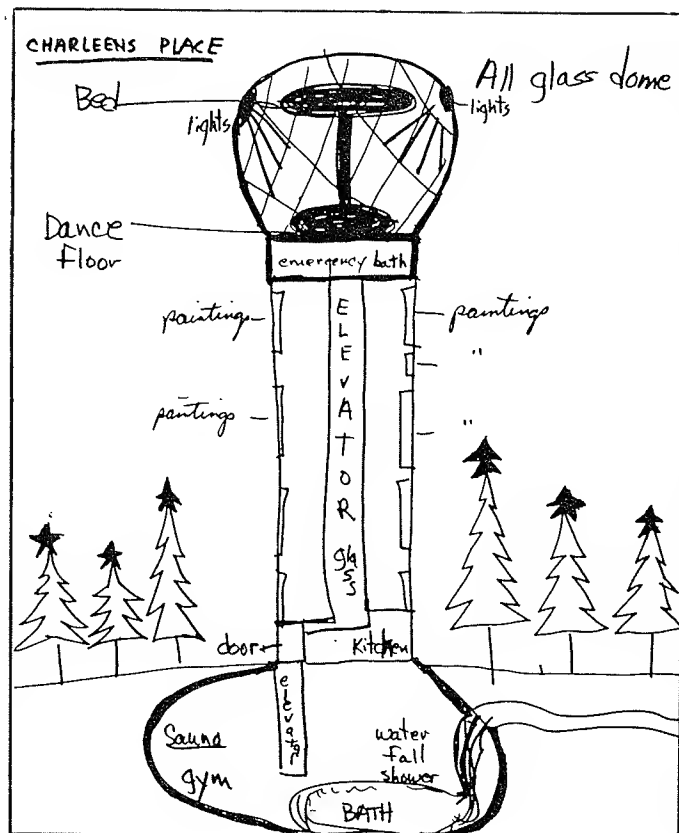 CHARLEENS PLACE
Bed
All glass dome
lights
lights
Dance
Floor
emergency bath
paintings
ELEVATOR
glass
paintings
"
paintings
"
door
Kitchen
elevator
Sauna
gym
water
fall
shower
BATH